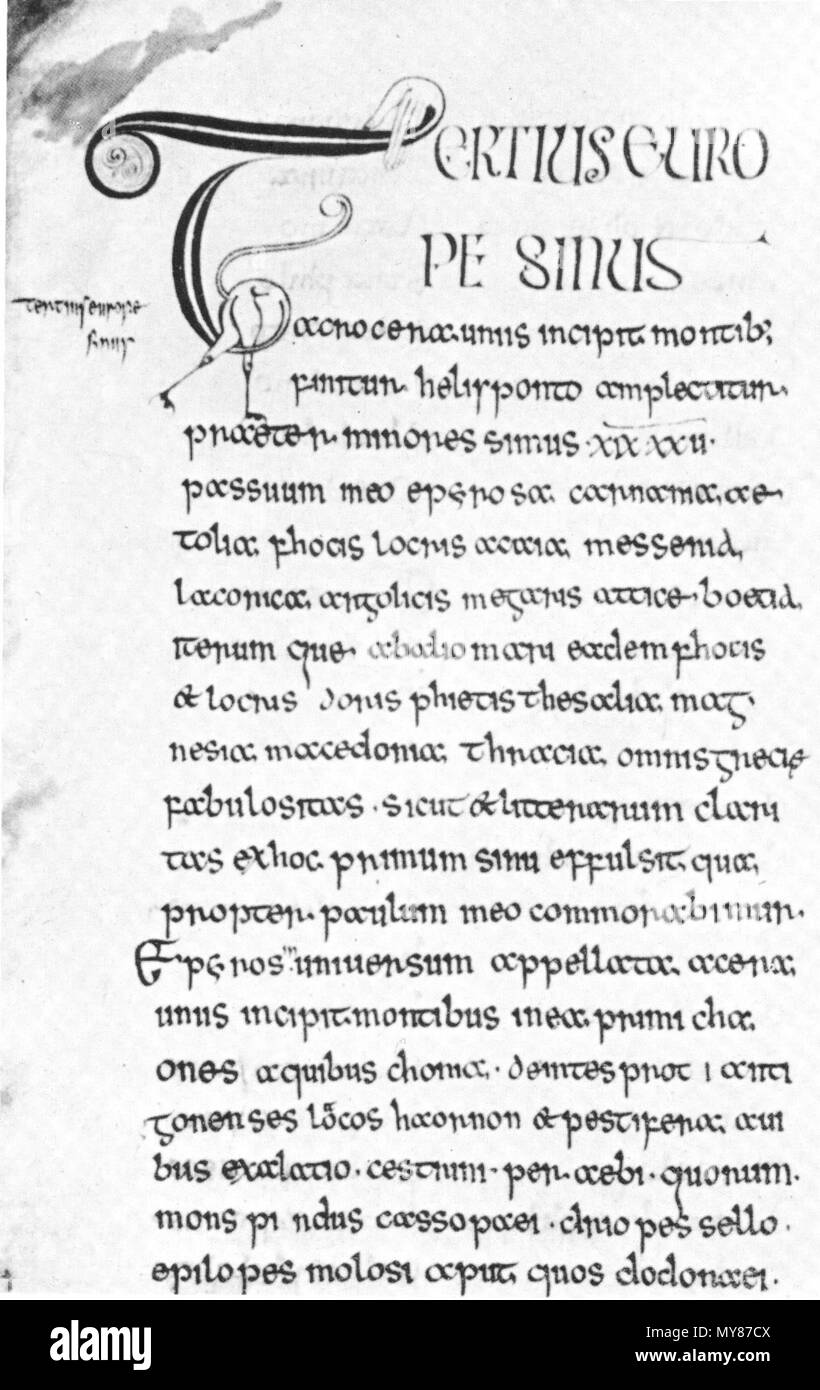 TERTIUS EURO
PE SINUS
tertius europe
sinus
acroceraunus incipit montib;
finitur helisponto amplectitur
praeter minores sinus XIX XXU
passuum meo epiros acarnama ae
tolia phocis locris acaia messenia
laconica argolicis megaris attice boetia
iterum que abadio mari eadem phocis
et locris doris phietis thesalia mag
nesia macedonia thracia omnis grecie
fabulositas sicut et litterarum clari
tas ex hoc primum sinu effulsit qua
propter paulum meo commorabimur
Epiros uniuersum appellata acera
unus incipit montibus inea primi cha
ones aquibus chonia deintes prot i anti
gonenses locos haornon et pestifera aui
bus exalatio cestium per aebi quorum
mons pi ndus cassopaei driopes sello
epilopes molosi aput quos dodonaei
alamy
Image ID: MY87CX
www.alamy.com